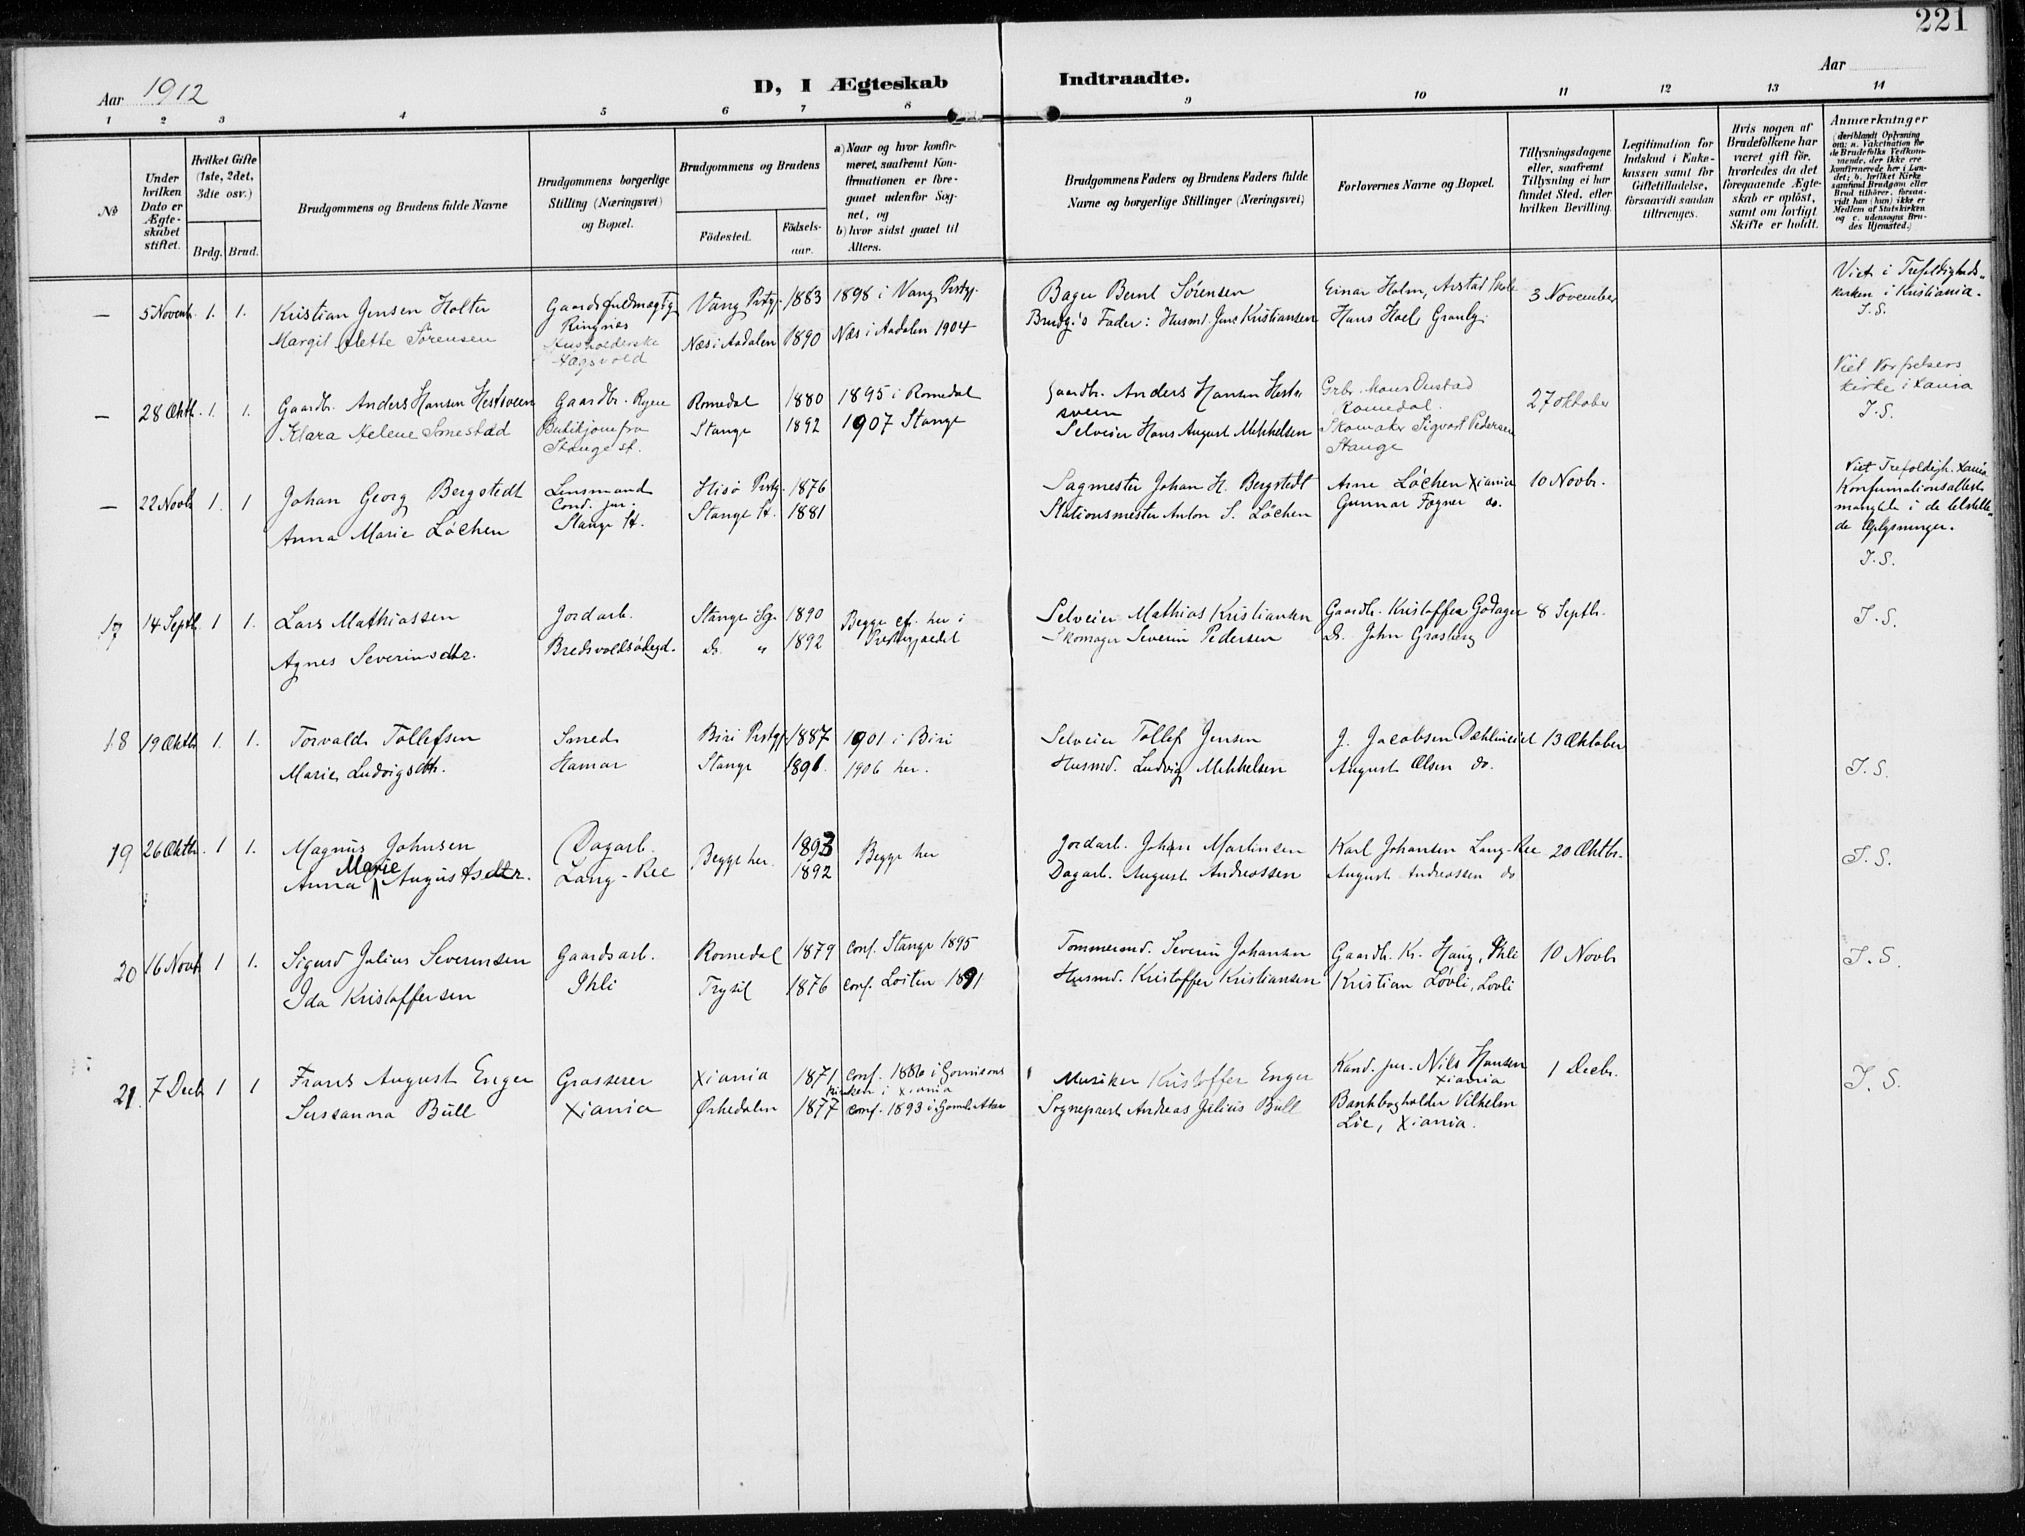 221
Aar 1912
D, I Ægteskab Indtraadte.
Aar
1 2 3 4 5 6 7 8 9 10 11 12 13 14
№
Under hvilken Dato er Ægteskabet stiftet.
Hvilket Gifte (1ste, 2det, 3die osv.)
Brdg. Brud.
Brudgommens og Brudens fulde Navne
Brudgommens borgerlige Stilling (Næringsvei) og Bopæl.
Brudgommens og Brudens
Födested. Födselsaar.
a) Naar og hvor konfirmeret, saafremt Konfirmationen er foregaaet udenfor Sognet, og
b) hvor sidst gaaet til Alters.
Brudgommens Faders og Brudens Faders fulde Navne og borgerlige Stillinger (Næringsvei)
Forlovernes Navne og Bopæl.
Tillysningsdagene eller, saafremt Tillysning ei har fundet Sted, efter hvilken Bevilling.
Legitimation for Indskud i Enkekassen samt for Giftetilladelse, forsaavidt saadan tiltrænges.
Hvis nogen af Brudefolkene har været gift för, hvorledes da det foregaaende Ægteskab er oplöst, samt om lovligt Skifte er holdt.
Anmærkninger (deriblandt Oplysning om: a. Vakcination for de Brudefolks Vedkommende, der ikke ere konfirmerede her i Landet; b. hvilket Kirkesamfund Brudgom eller Brud tilhörer, forsaavidt han (hun) ikke er Medlem af Statskirken og c. udensogns Brudes Hjemsted.)
— 5 Novemb. 1. 1. Kristian Jensen Holter Gaardsfuldmægtig Vang Prstgj. 1883 1898 i Vang Prstgj. Bager Bernt Sörensen Einar Holm, 3 November Viet i Trefoldigheds-
Margit Alette Sörensen Ringnes Næs i Aadalen 1890 Næs i Aadalen 1904 Brudg.'s Fader: Husmd. Jens Kristiansen Hans Hoel kirken i Kristiania.
Husholderske J.S.
— 28 Oktb. 1. 1. Gaardbr. Anders Hansen Hestsveen Gaardbr. Ryen Romedal 1880 1895 i Romedal Gaardbr. Anders Hansen Hest- Grbr. 27 oktober Viet Vor Frelsers
sveen Romedal. kirke i Xania
Klara Helene Smestad Butikjomfru Stange 1892 1907 Stange Selveier Hans August Mikkelsen Skomaker Sigvart Pedersen J.S.
Stange st. Stange
— 22 Novb 1. 1 Johan Georg Bergstedt Lensmand Hisö Prstg. 1876 Sagmester Johan H. Bergstedt Arne Löchen Xiania 10 Novbr. Viet Trefoldigh. Xania
Anna Marie Löchen Cand. jur. Stange St. 1881 Stationsmester Anton S. Löchen Gunnar Fogner do. Konfirmationsattest
Stange St. manglede i de tilstille-
de Oplysninger.
J.S.
17 14 Septb 1 1. Lars Mathiassen Jordarb. Stange Sg. 1890 Begge cf. her i Selveier Mathias Kristiansen Gaardbr. Kristoffer Godager 8 Septbr. J.S.
Agnes Severinsdtr. Do. " 1892 Præstegjældet Skomager Severin Pedersen Do. John Grosberg
18 19 Oktb 1. 1. Torvald Tollefsen Smed Biri Prstgj. 1887 1901 i Biri Selveier Tollef Jensen J. Jacobsen 13 Oktober
Marie Ludvigsdtr. Hamar Stange 1891. 1906 her. Husmd. Ludvig Mikkelsen August Olsen do. J.S.
19 26 Oktbr. 1 1. Magnus Johnsen Dagarb. Begge her. 1893 Begge her Jordarb. John Martinsen Karl Johansen Lang-Ree 20 Oktbr. J.S.
Anna Marie Augustsdtr. Lang-Ree 1892 Dagarb. August Andreassen August Andreassen do
20 16 Novb 1 1. Sigurd Julius Severinsen Gaardsarb. Romedal 1879 Conf. Stange 1895 Tömmermd. Severin Johansen Gaardb. K. Haug, Ihli 10 Novbr J.S.
Ida Kristoffersen Ihli Trysil 1876 Conf. Löiten 1891 Husmd. Kristoffer Kristiansen Kristian Lövli, Lovli
21. 7 Decb 1 1 Frans August Enger Grosserer Xiania 1871 Conf. 1886 i Garnisons Musiker Kristoffer Enger Kand. jur. Nils Hansen 1 Decbr. J.S.
kirken i Xiania Xiania
Sussanna Bull Xiania Orkedalen 1877 Conf. 1893 i Gamle Aker Sogneprest Andreas Julius Bull Bankbogholder Vilhelm
Lie, Xiania.